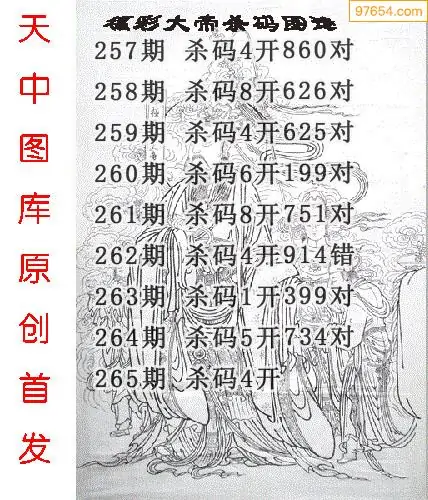 97654.com
福彩大帝杀码图逸
257期 杀码4开860对
258期 杀码8开626对
259期 杀码4开625对
260期 杀码6开199对
261期 杀码8开751对
262期 杀码4开914错
263期 杀码1开399对
264期 杀码5开734对
265期 杀码4开
天中图库原创首发